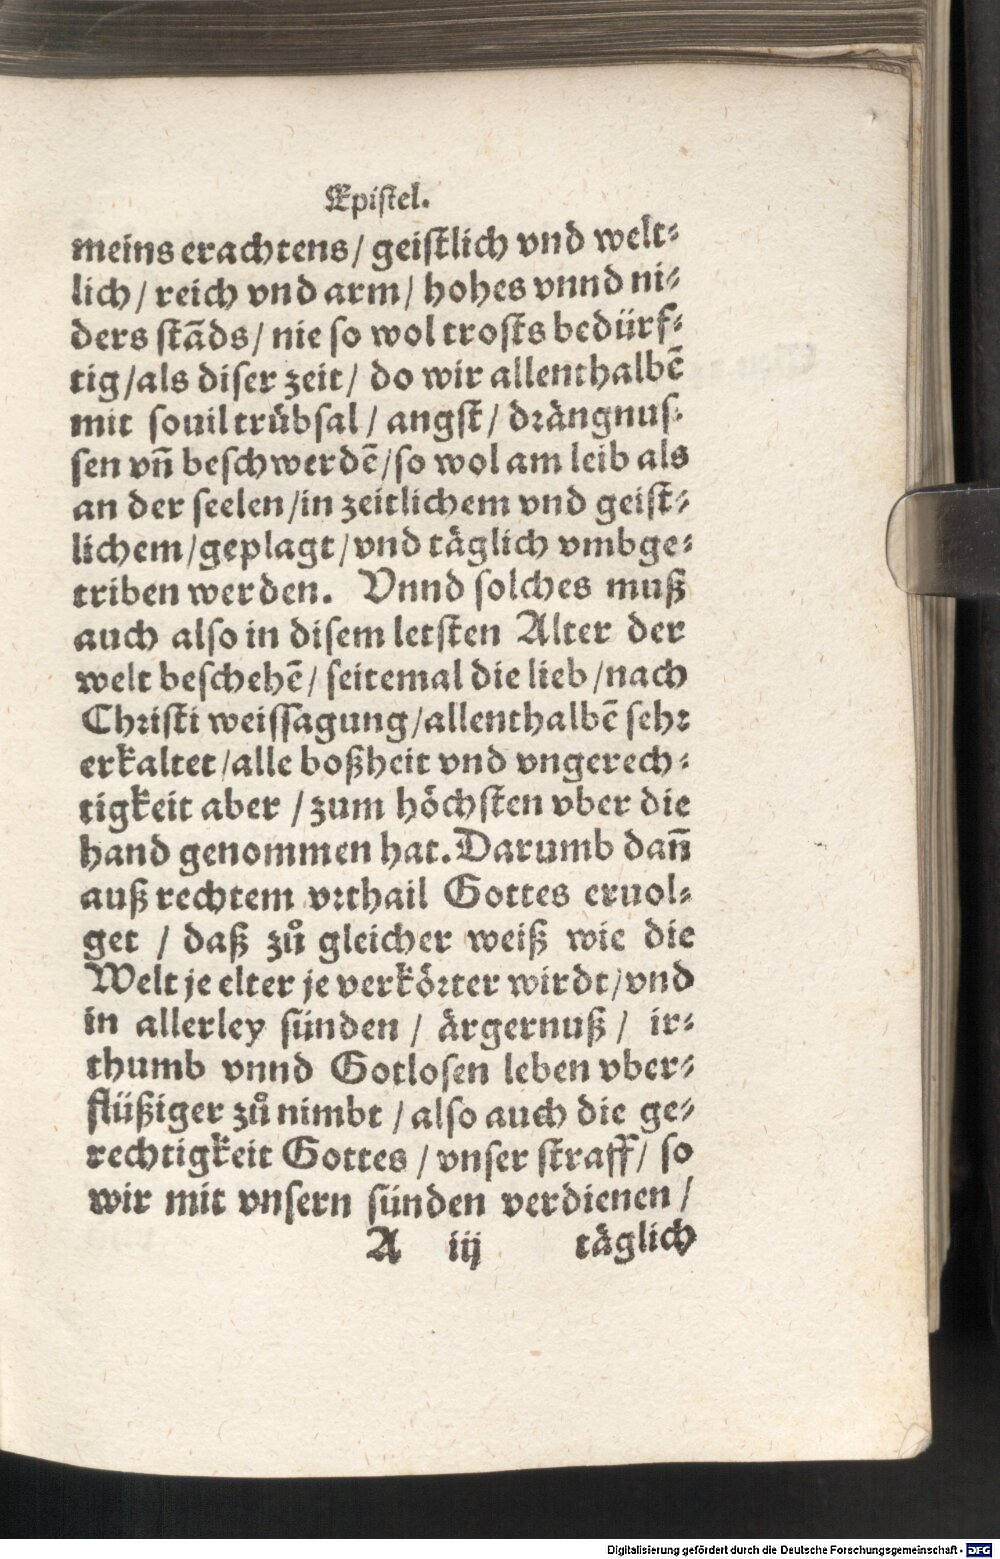 Epistel.
meins erachtens/ geistlich vnd welt⸗
lich/ reich vnd arm/ hohes vnnd ni⸗
ders stãds/ nie so wol trosts bedürf⸗
tig/als diser zeit/ do wir allenthalbẽ
mit souil trübsal/ angst/ drängnus⸗
sen vñ beschwerdẽ/so wol am leib als
an der seelen/in zeitlichem vnd geist⸗
lichem/geplagt/vnd täglich vmbge⸗
triben werden. Vnnd solches muß
auch also in disem letsten Alter der
welt beschehẽ/ seitemal die lieb/nach
Christi weissagung/allenthalbẽ sehr
erkaltet/alle boßheit vnd vngerech⸗
tigkeit aber/zum höchsten vber die
hand genommen hat. Darumb dañ
auß rechtem vrthail Gottes eruol⸗
get / daß zů gleicher weiß wie die
Welt je elter je verkörter wirdt/vnd
in allerley sünden / ärgernuß / ir⸗
thumb vnnd Gotlosen leben vber⸗
flüßiger zů nimbt / also auch die ge⸗
rechtigkeit Gottes / vnser straff/ so
wir mit vnsern sünden verdienen /
A iij täglich
Digitalisierung gefördert durch die Deutsche Forschungsgemeinschaft - DFG